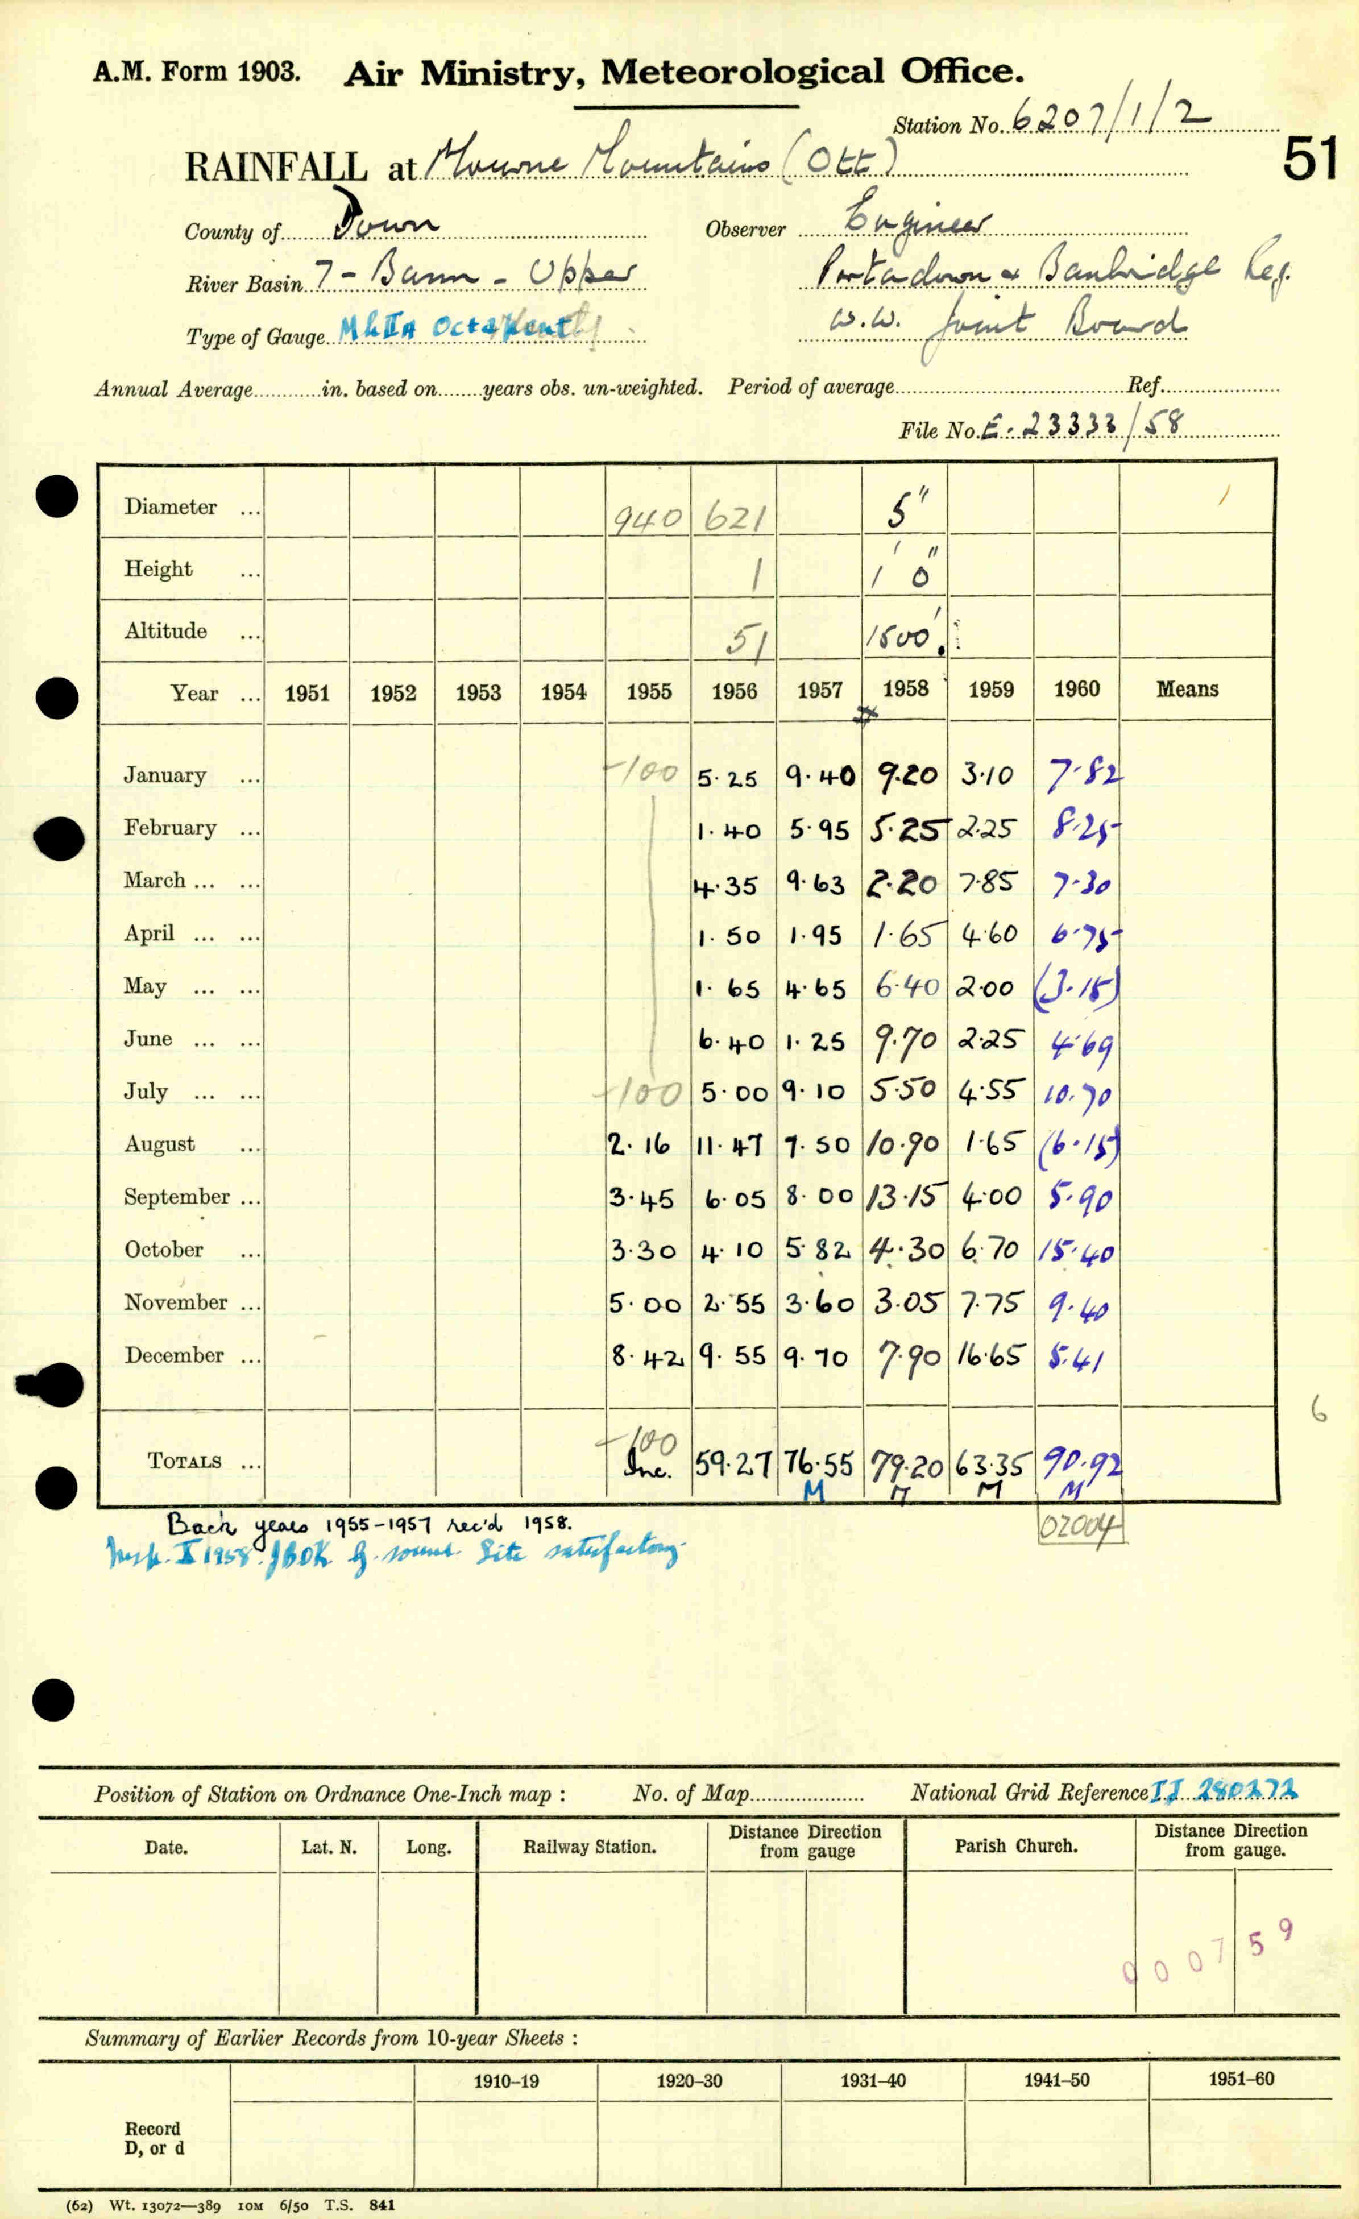 A.M. Form 1903. Air Ministry, Meteorological Office.
Station No. 6207/1/2
51
RAINFALL at Mourne Mountains (Ott)
County of Down Observer Engineer
River Basin 7 - Bann - Upper Portadown & Banbridge Reg.
Type of Gauge MkIIA Octapent W.W. Joint Board
Annual Average in. based on years obs. un-weighted. Period of average Ref.
File No. E. 23333/58
Diameter ... 940 621 5"
Height ... 1 1' 0"
Altitude ... 51 1500'
Year ... 1951 1952 1953 1954 1955 1956 1957 1958 1959 1960 Means
January ... -100 5.25 9.40 9.20 3.10 7.82
February ... 1.40 5.95 5.25 2.25 8.25
March ... ... 4.35 9.63 2.20 7.85 7.30
April ... ... 1.50 1.95 1.65 4.60 6.75
May ... ... 1.65 4.65 6.40 2.00 (3.15)
June ... ... 6.40 1.25 9.70 2.25 4.69
July ... ... -100 5.00 9.10 5.50 4.55 10.70
August ... 2.16 11.47 7.50 10.90 1.65 (6.15)
September ... 3.45 6.05 8.00 13.15 4.00 5.90
October ... 3.30 4.10 5.82 4.30 6.70 15.40
November ... 5.00 2.55 3.60 3.05 7.75 9.40
December ... 8.42 9.55 9.70 7.90 16.65 5.41
6
-100
TOTALS ... Inc. 59.27 76.55 79.20 63.35 90.92
M M M M
Back years 1955-1957 rec'd 1958.
02004
Insp. X 1958. Site satisfactory.
Position of Station on Ordnance One-Inch map : No. of Map National Grid Reference IJ 280272
Date. Lat. N. Long. Railway Station. Distance from gauge Direction Parish Church. Distance from gauge. Direction
000759
Summary of Earlier Records from 10-year Sheets :
1910–19 1920–30 1931–40 1941–50 1951–60
Record
D, or d
(62) Wt. 13072—389 10M 6/50 T.S. 841